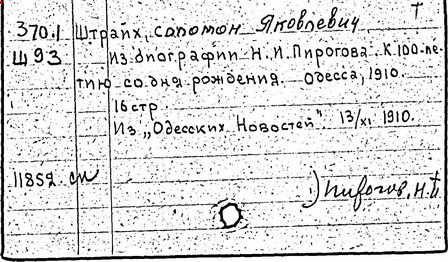 Т
370.1 Штрайх, Соломон Яковлевич
Щ 93 Из биографии Н. И. Пирогова. К 100-ле-
тию со дня рождения. Одесса, 1910.
16 стр.
Из „Одесских Новостей" 13/XI 1910.
11852 сп
) Пирогов, Н. И.